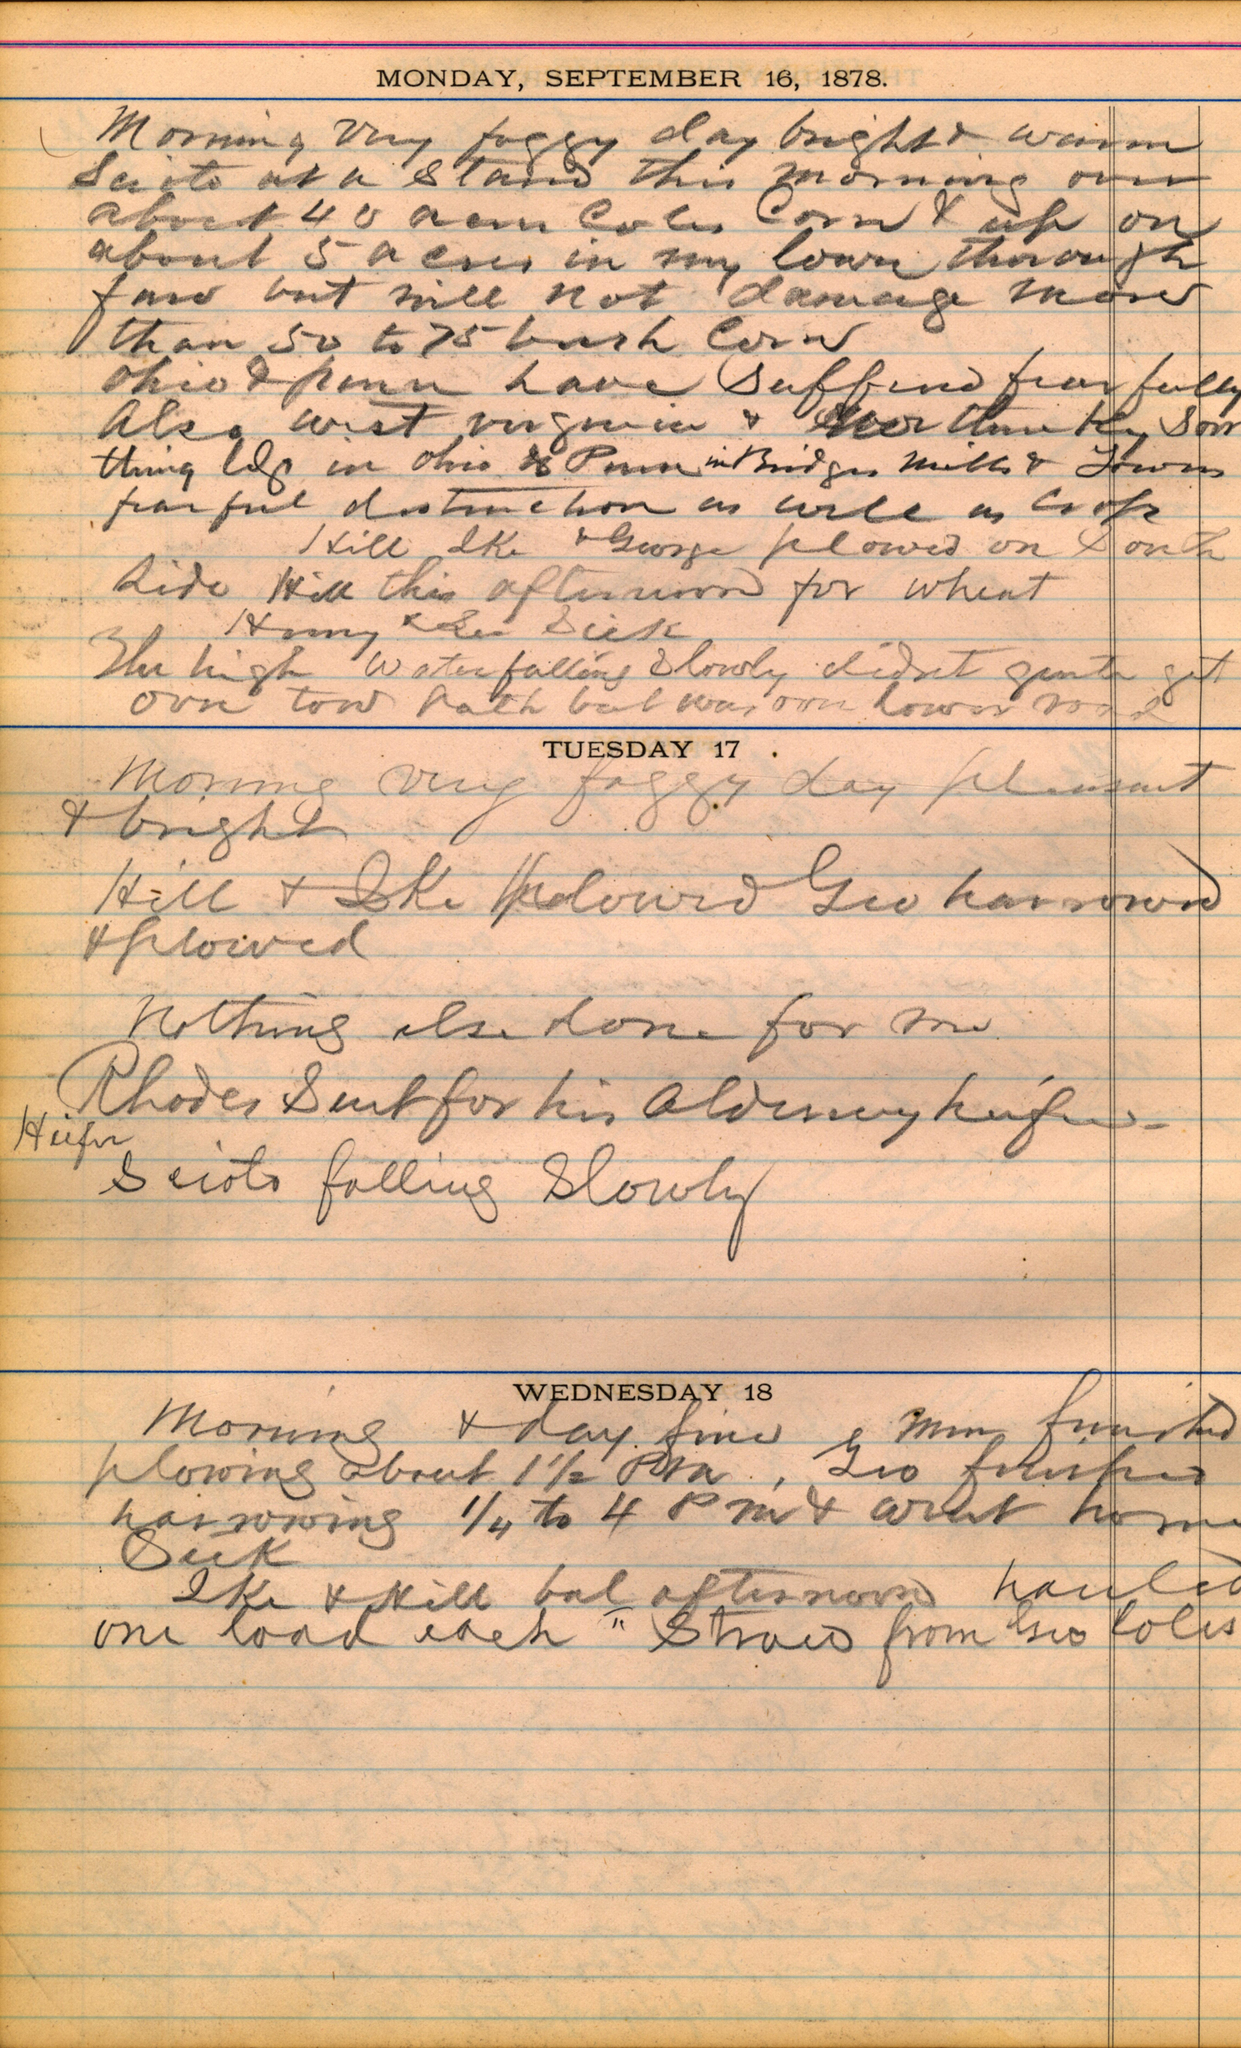 MONDAY, SEPTEMBER 16, 1878.
Morning very foggy day bright & warm
Scioto at a Stand this morning over
about 40 acres Coles Corn & up on
about 5 acres in my lower thorough
fare but will not damage more
than 50 to 75 bush Corn
Ohio & Penn have Suffered fearfully
Also west virginia & Northern Ky Som
thing in Ohio & Penn in Bridges Mills & Towns
fearful distruction as well as Crops
Hill Ike & George plowed on South
Side Hill this afternoon for wheat
Henry & Geo Sick
The high Water falling Slowly didnt quite get
over tow path but was over lower road
TUESDAY 17
Morning very foggy day pleasant
& bright
Hill & Ike plowed Geo harrowed
& plowed
Nothing else done for me
Rhodes Sent for his Alderney heifer
Heifer
Scioto falling Slowly
WEDNESDAY 18
Morning & day fine & Men finished
plowing about 1 1/2 PM, Geo finished
harrowing 1/4 to 4 PM & went home
Sick
Ike & Hill bal afternoon hauled
one load each " Straw from Geo Coles